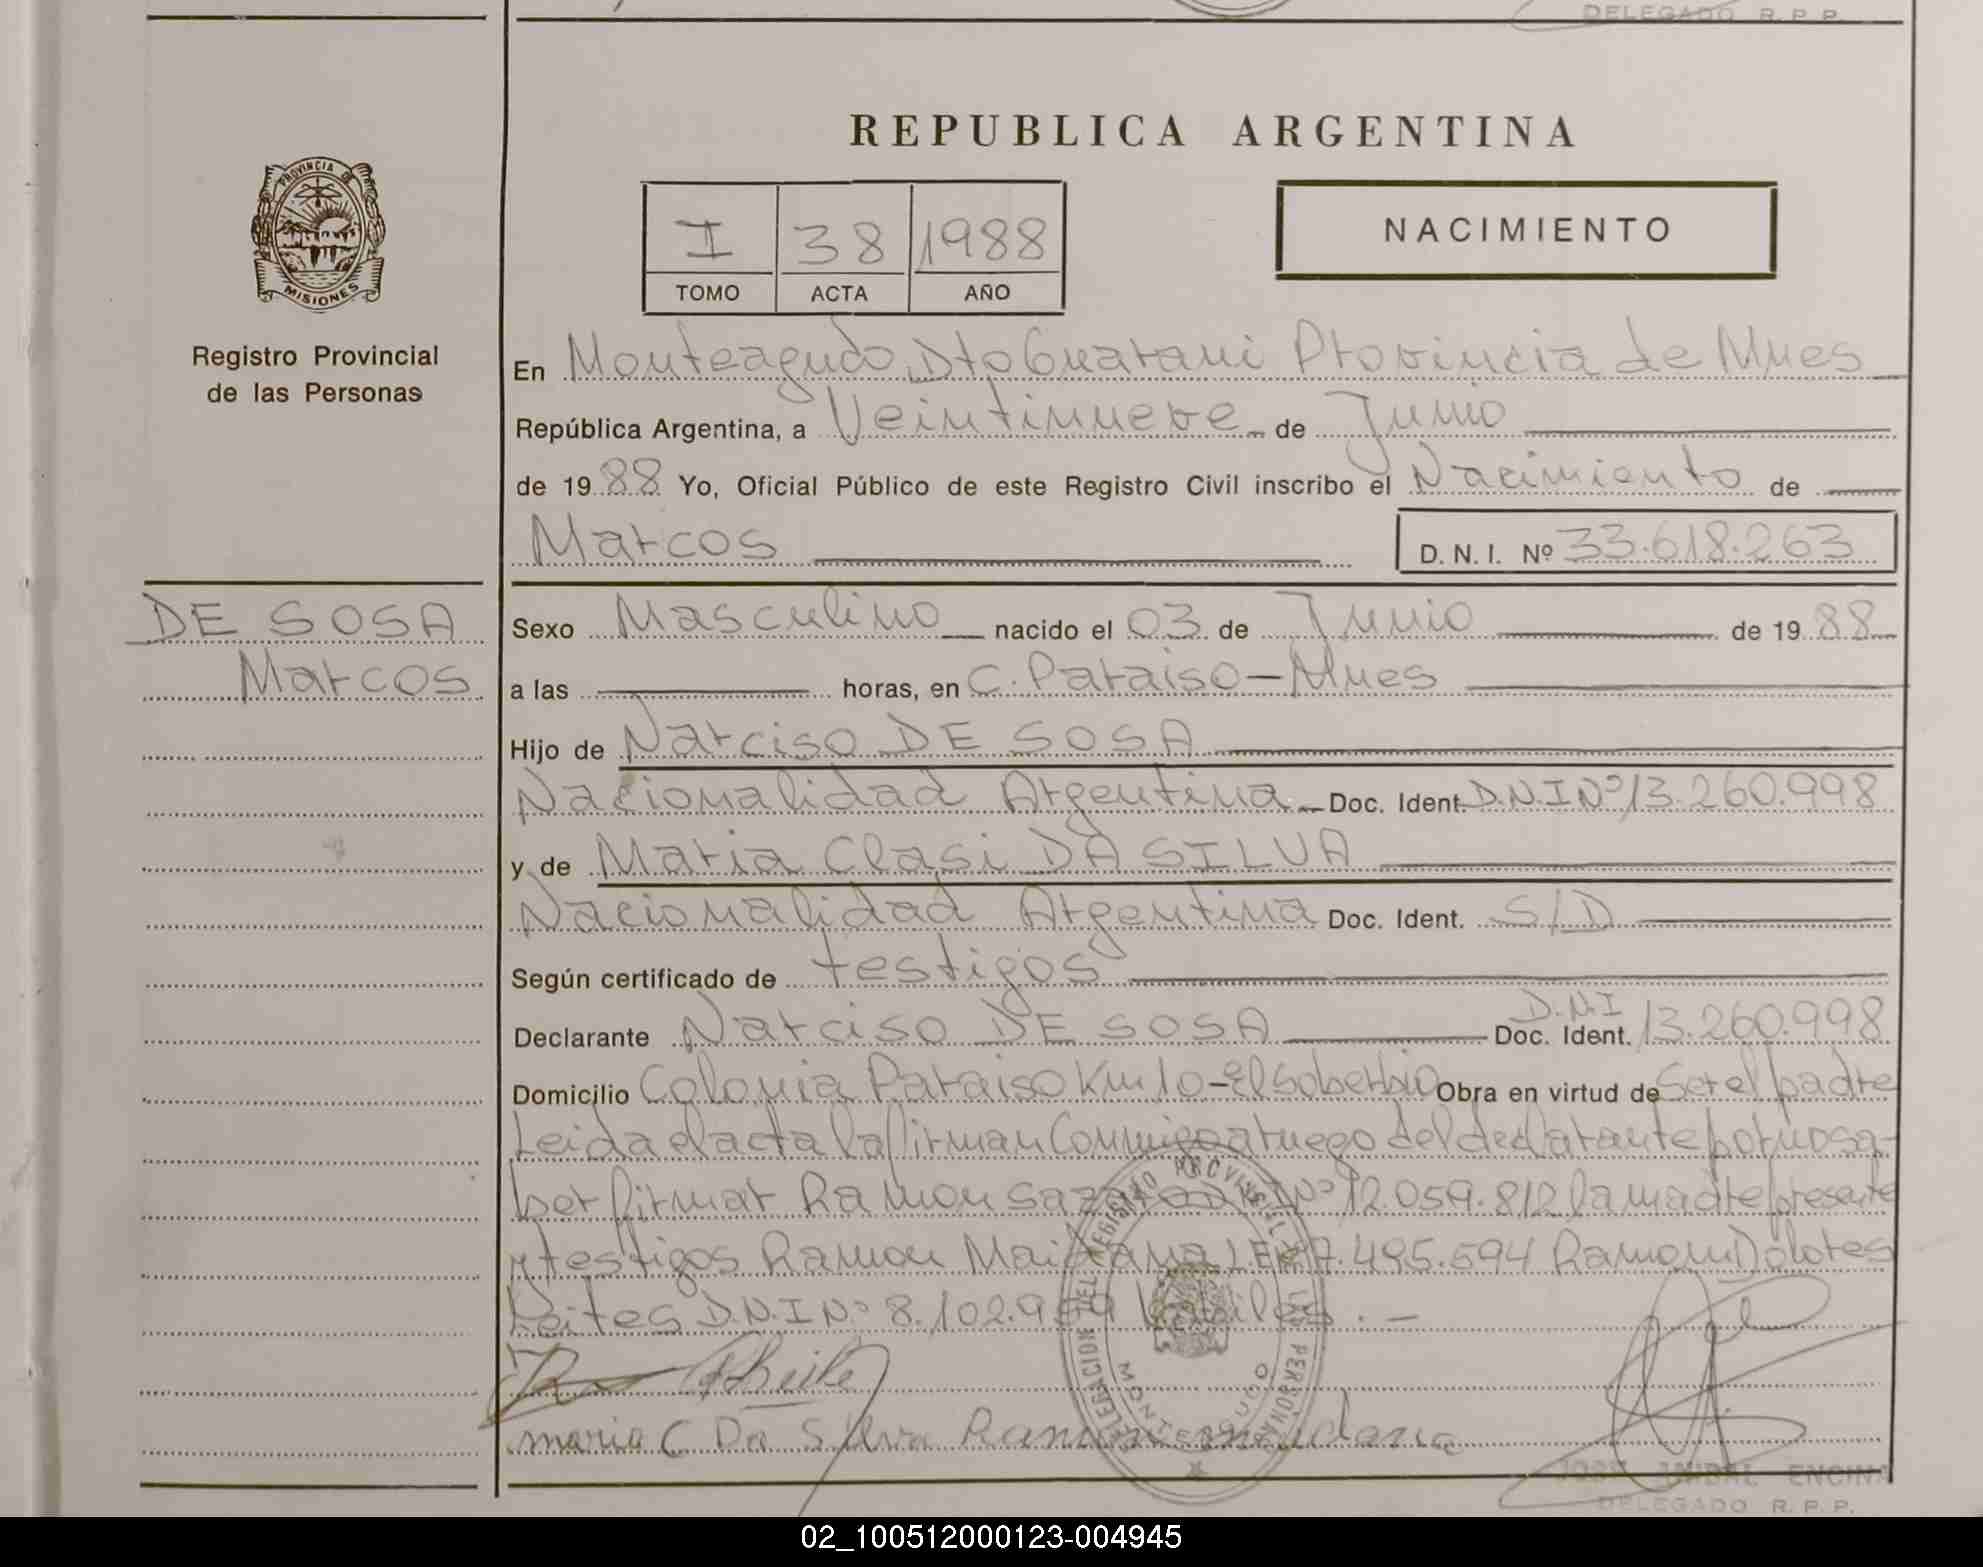 DELEGADO R. P. P.
REPUBLICA ARGENTINA
PROVINCIA DE
MISIONES
Registro Provincial
de las Personas
I 38 1988
TOMO ACTA AÑO
NACIMIENTO
En Monteagudo, Dto Guarani Provincia de Mnes
República Argentina, a Veintinueve de Junio
de 1988 Yo, Oficial Público de este Registro Civil inscribo el Nacimiento de
Marcos
D. N. I. Nº 33.618.263
DE SOSA
Marcos
Sexo Masculino nacido el 03 de Junio de 1988
a las horas, en C. Paraiso - Mnes
Hijo de Narciso DE SOSA
Nacionalidad Argentina Doc. Ident. D.N.I Nº 13.260.998
y de Maria Clasi DA SILVA
Nacionalidad Argentina Doc. Ident. S/D
Según certificado de testigos
Declarante Narciso DE SOSA Doc. Ident. D.N.I 13.260.998
Domicilio Colonia Paraiso Km 10 - El Soberbio Obra en virtud de Ser el padre
Leida el acta la firman Conmigo a ruego del declarante por no sa-
ber firmar Ramon D.N.I Nº 12.059.812 la madre presente
y testigos Ramon Maidana L.E. Nº 7.495.594 Ramon Dolores
Leites D.N.I Nº 8.102.959 habiles . -
maria C Da Silva Ramon maidana
DELEGACION DEL REGISTRO PROVINCIAL DE LAS PERSONAS
MONTEAGUDO
JOSE ANIBAL ENCINA
DELEGADO R. P. P.
02_100512000123-004945